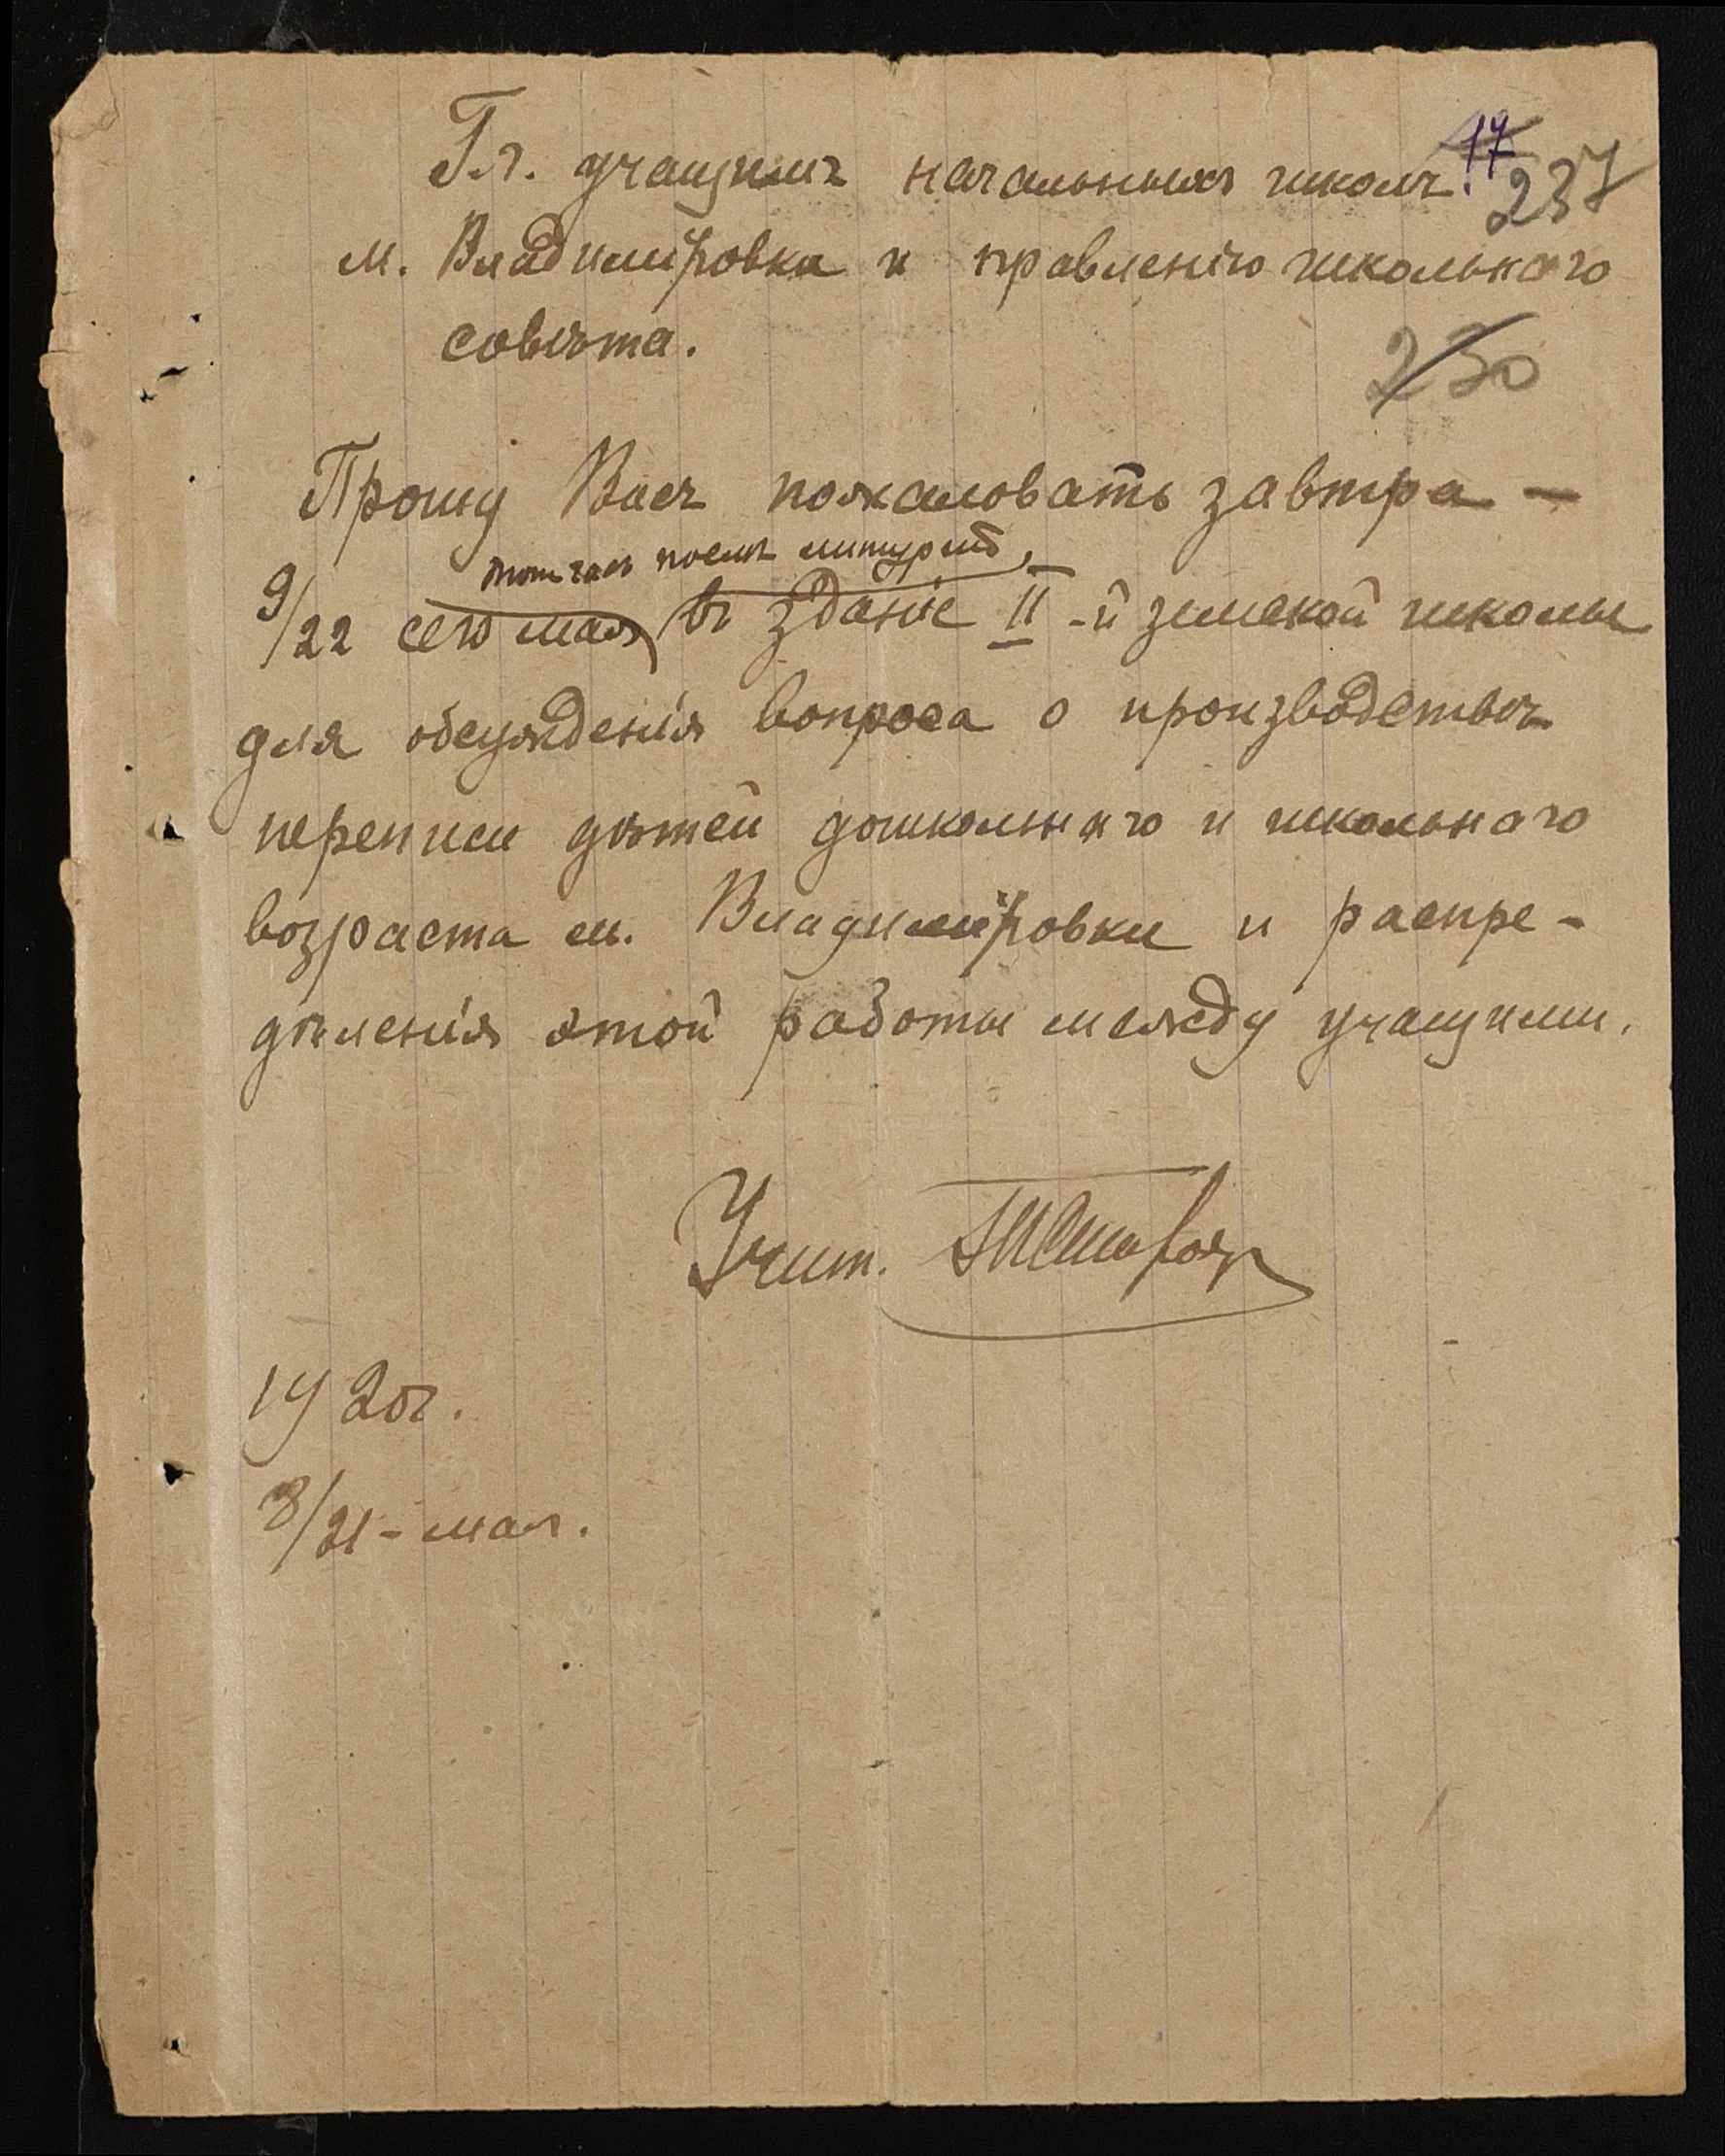 Гг. учащимъ начальныхъ школъ 17
237
м. Владимiровка и правленiю школьнаго
совѣта.
230
Прошу Васъ пожаловать завтра —
тотчасъ послѣ литургiи,
9/22 сего мая, въ зданiе II-й земской школы
для обсужденiя вопроса о производствѣ
переписи дѣтей дошкольнаго и школьнаго
возраста м. Владимiровки и распре-
дѣленiя этой работы между учащими.
Учит.
1920г.
8/21 - мая.